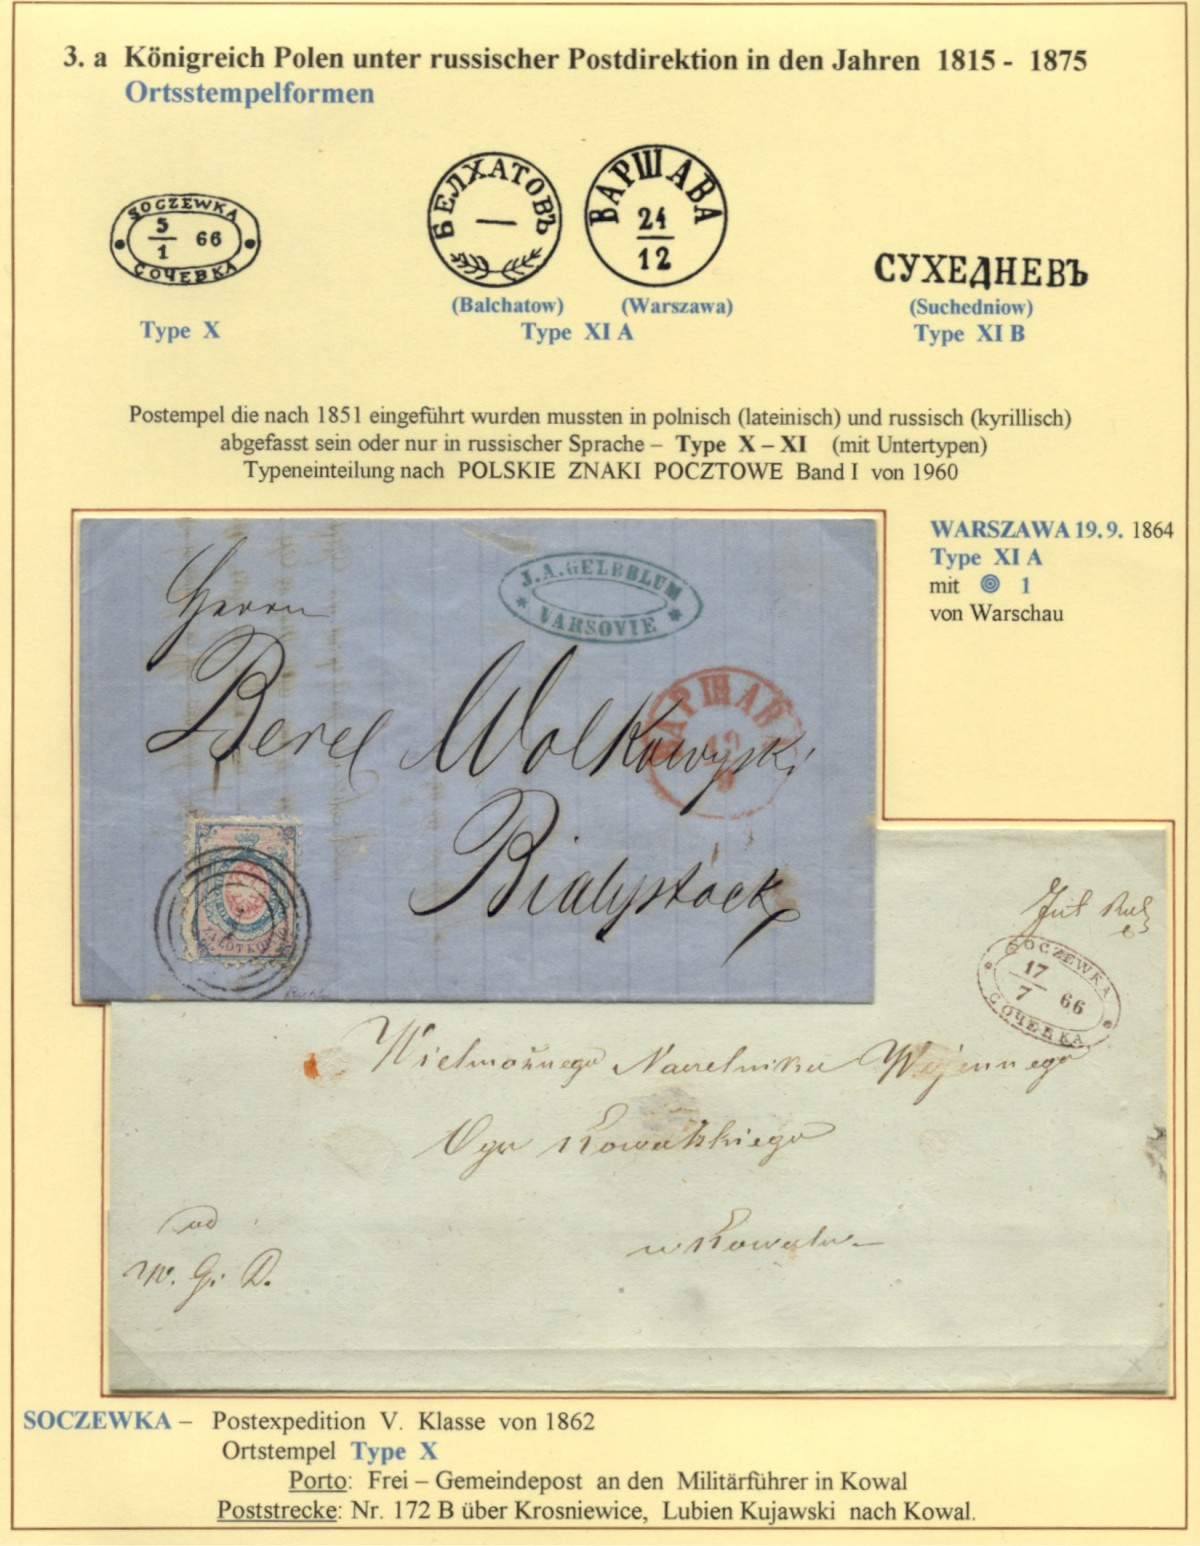 3. a Königreich Polen unter russischer Postdirektion in den Jahren 1815 - 1875
Ortsstempelformen
SOCZEWKA
5
1
66
СОЧЕВКА
Type X
БЕЛХАТОВЪ
(Balchatow)
ВАРШАВА
24
12
(Warszawa)
Type XI A
СУХЕДНЕВЪ
(Suchedniow)
Type XI B
Postempel die nach 1851 eingeführt wurden mussten in polnisch (lateinisch) und russisch (kyrillisch)
abgefasst sein oder nur in russischer Sprache – Type X – XI (mit Untertypen)
Typeneinteilung nach POLSKIE ZNAKI POCZTOWE Band I von 1960
WARSZAWA 19. 9. 1864
Type XI A
mit 1
von Warschau
J.A. GELBBLUM
VARSOVIE
Herrn
Berel Wolkowyski
ВАРШАВА
19
9
Bialystock
ZA LOT KOP. 10
SOCZEWKA
17
7
66
СОЧЕВКА
Wielmożnego Naczelnika Wojennego
Ogu Kowalskiego
w Kowalu
od
W. G. D.
SOCZEWKA – Postexpedition V. Klasse von 1862
Ortstempel Type X
Porto: Frei – Gemeindepost an den Militärführer in Kowal
Poststrecke: Nr. 172 B über Krosniewice, Lubien Kujawski nach Kowal.